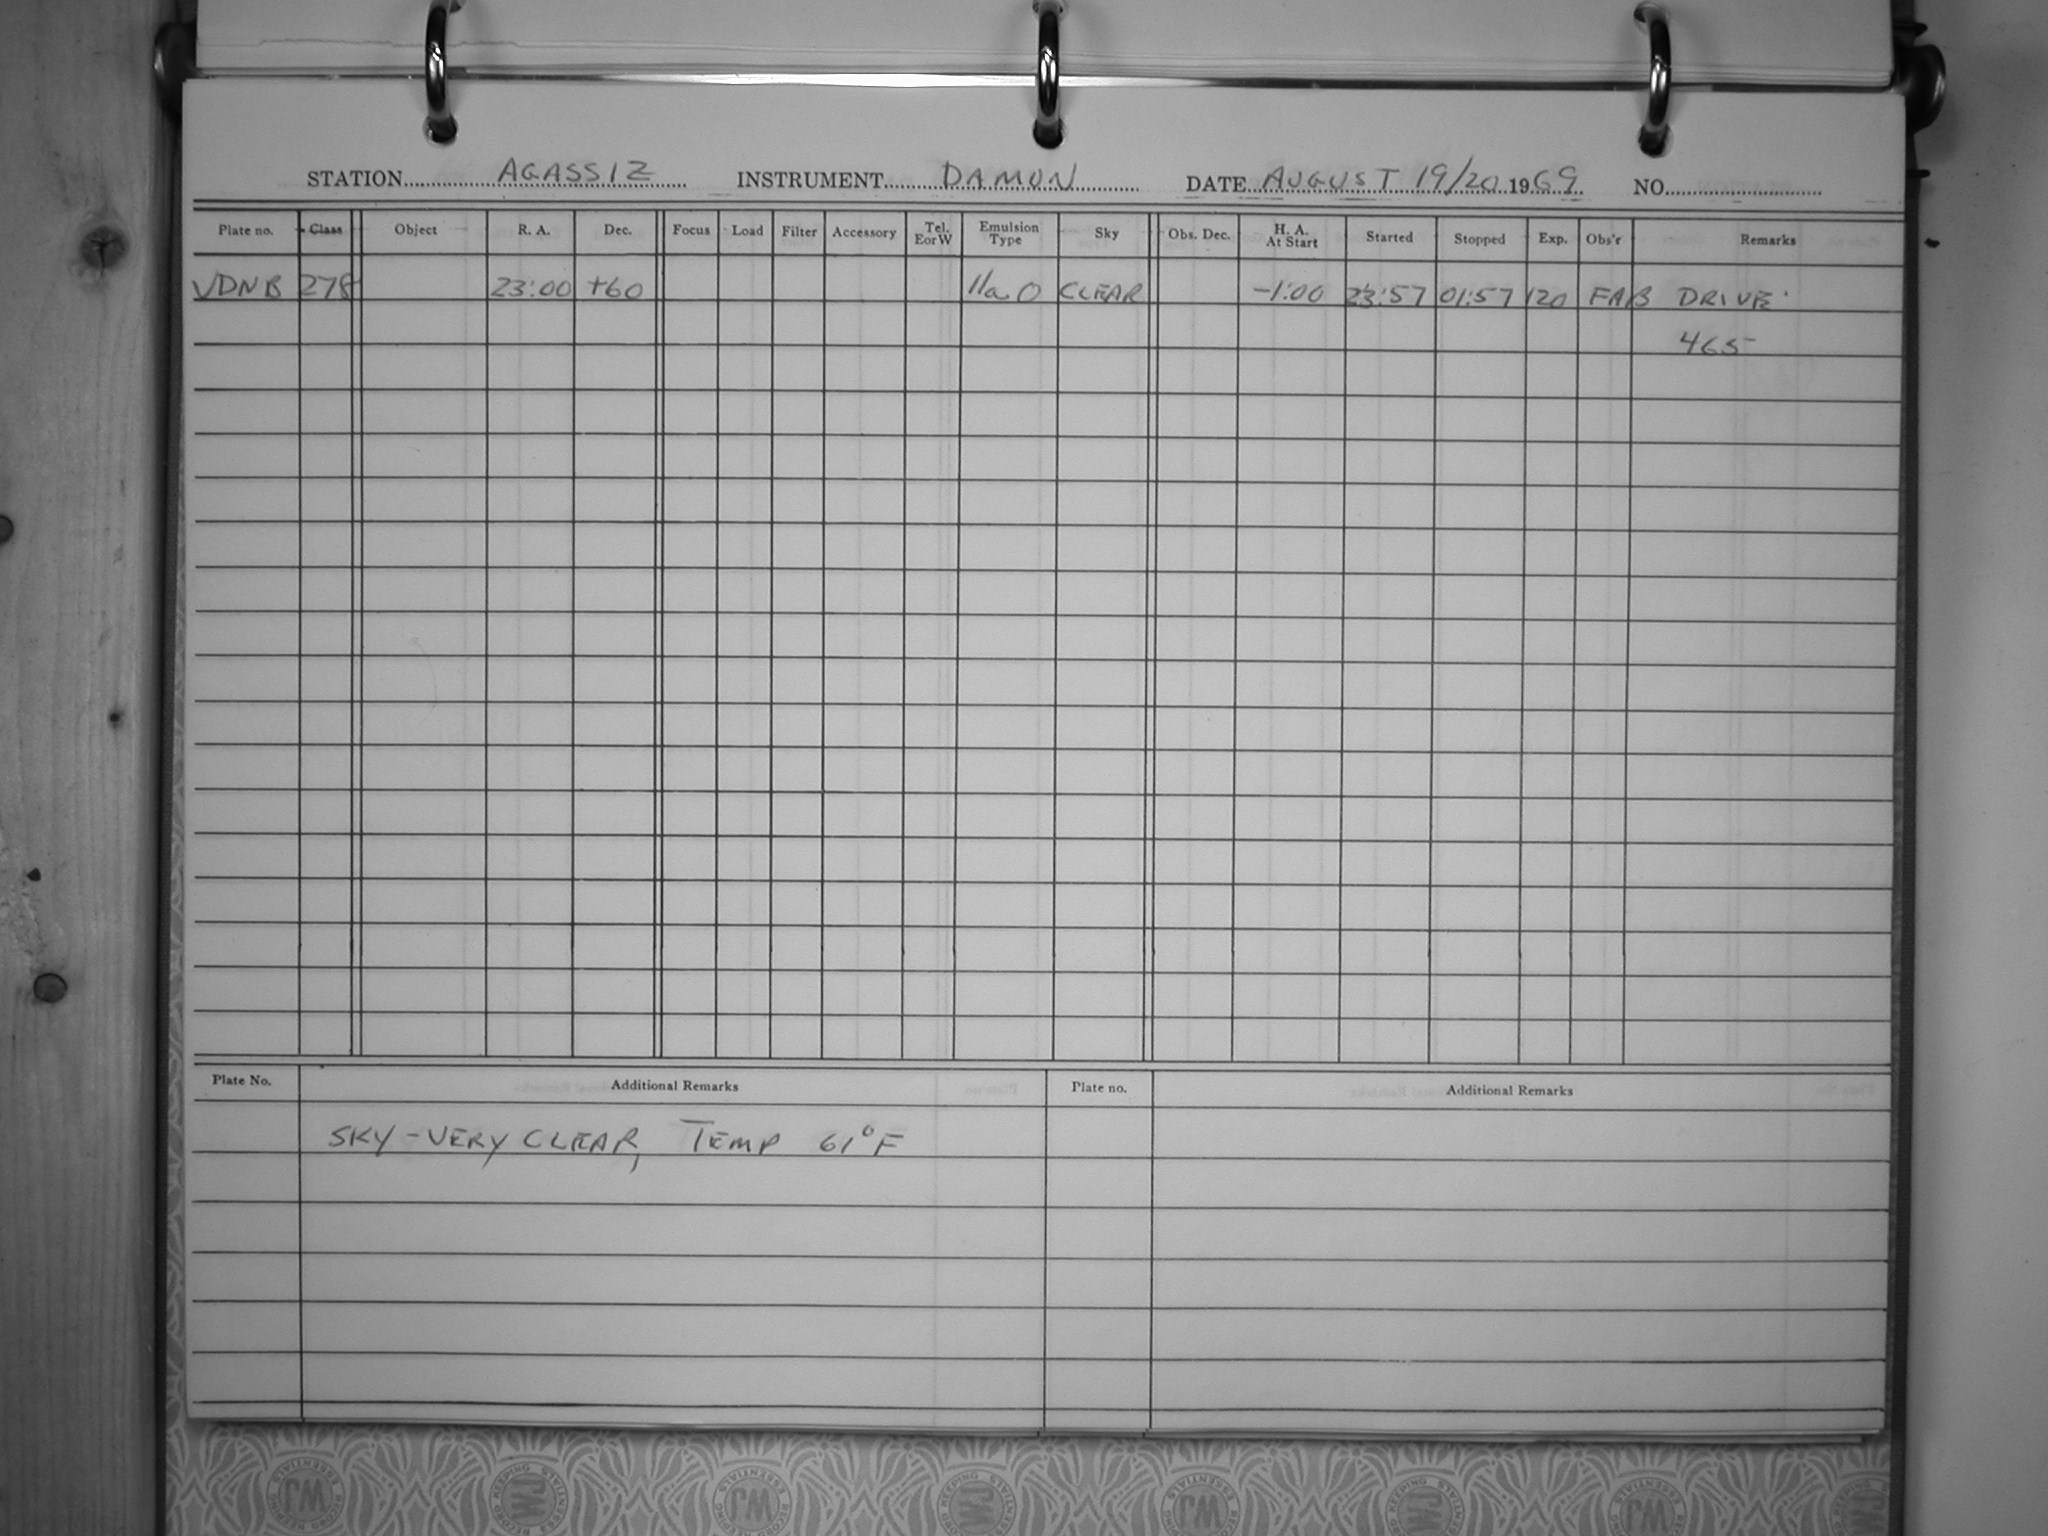 STATION AGASSIZ INSTRUMENT DAMON DATE AUGUST 19/20 1969 NO.
Plate no. Class Object R. A. Dec. Focus Load Filter Accessory Tel. EorW Emulsion Type Sky Obs. Dec. H. A. At Start Started Stopped Exp. Obs'r Remarks
VDNB 278 23:00 +60 IIa O CLEAR -1:00 23:57 01:57 120 FAB DRIVE
465
Plate No. Additional Remarks Plate no. Additional Remarks
SKY - VERY CLEAR, TEMP 61°F
WJ RECORD KEEPING ESSENTIALS